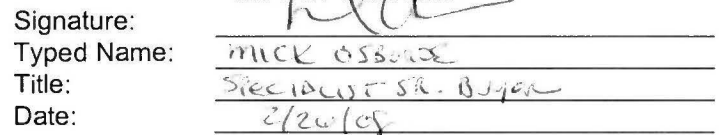 Signature:
Typed Name: MICK OSBORNE
Title: SPECIALIST SR. BUYER
Date: 2/26/08